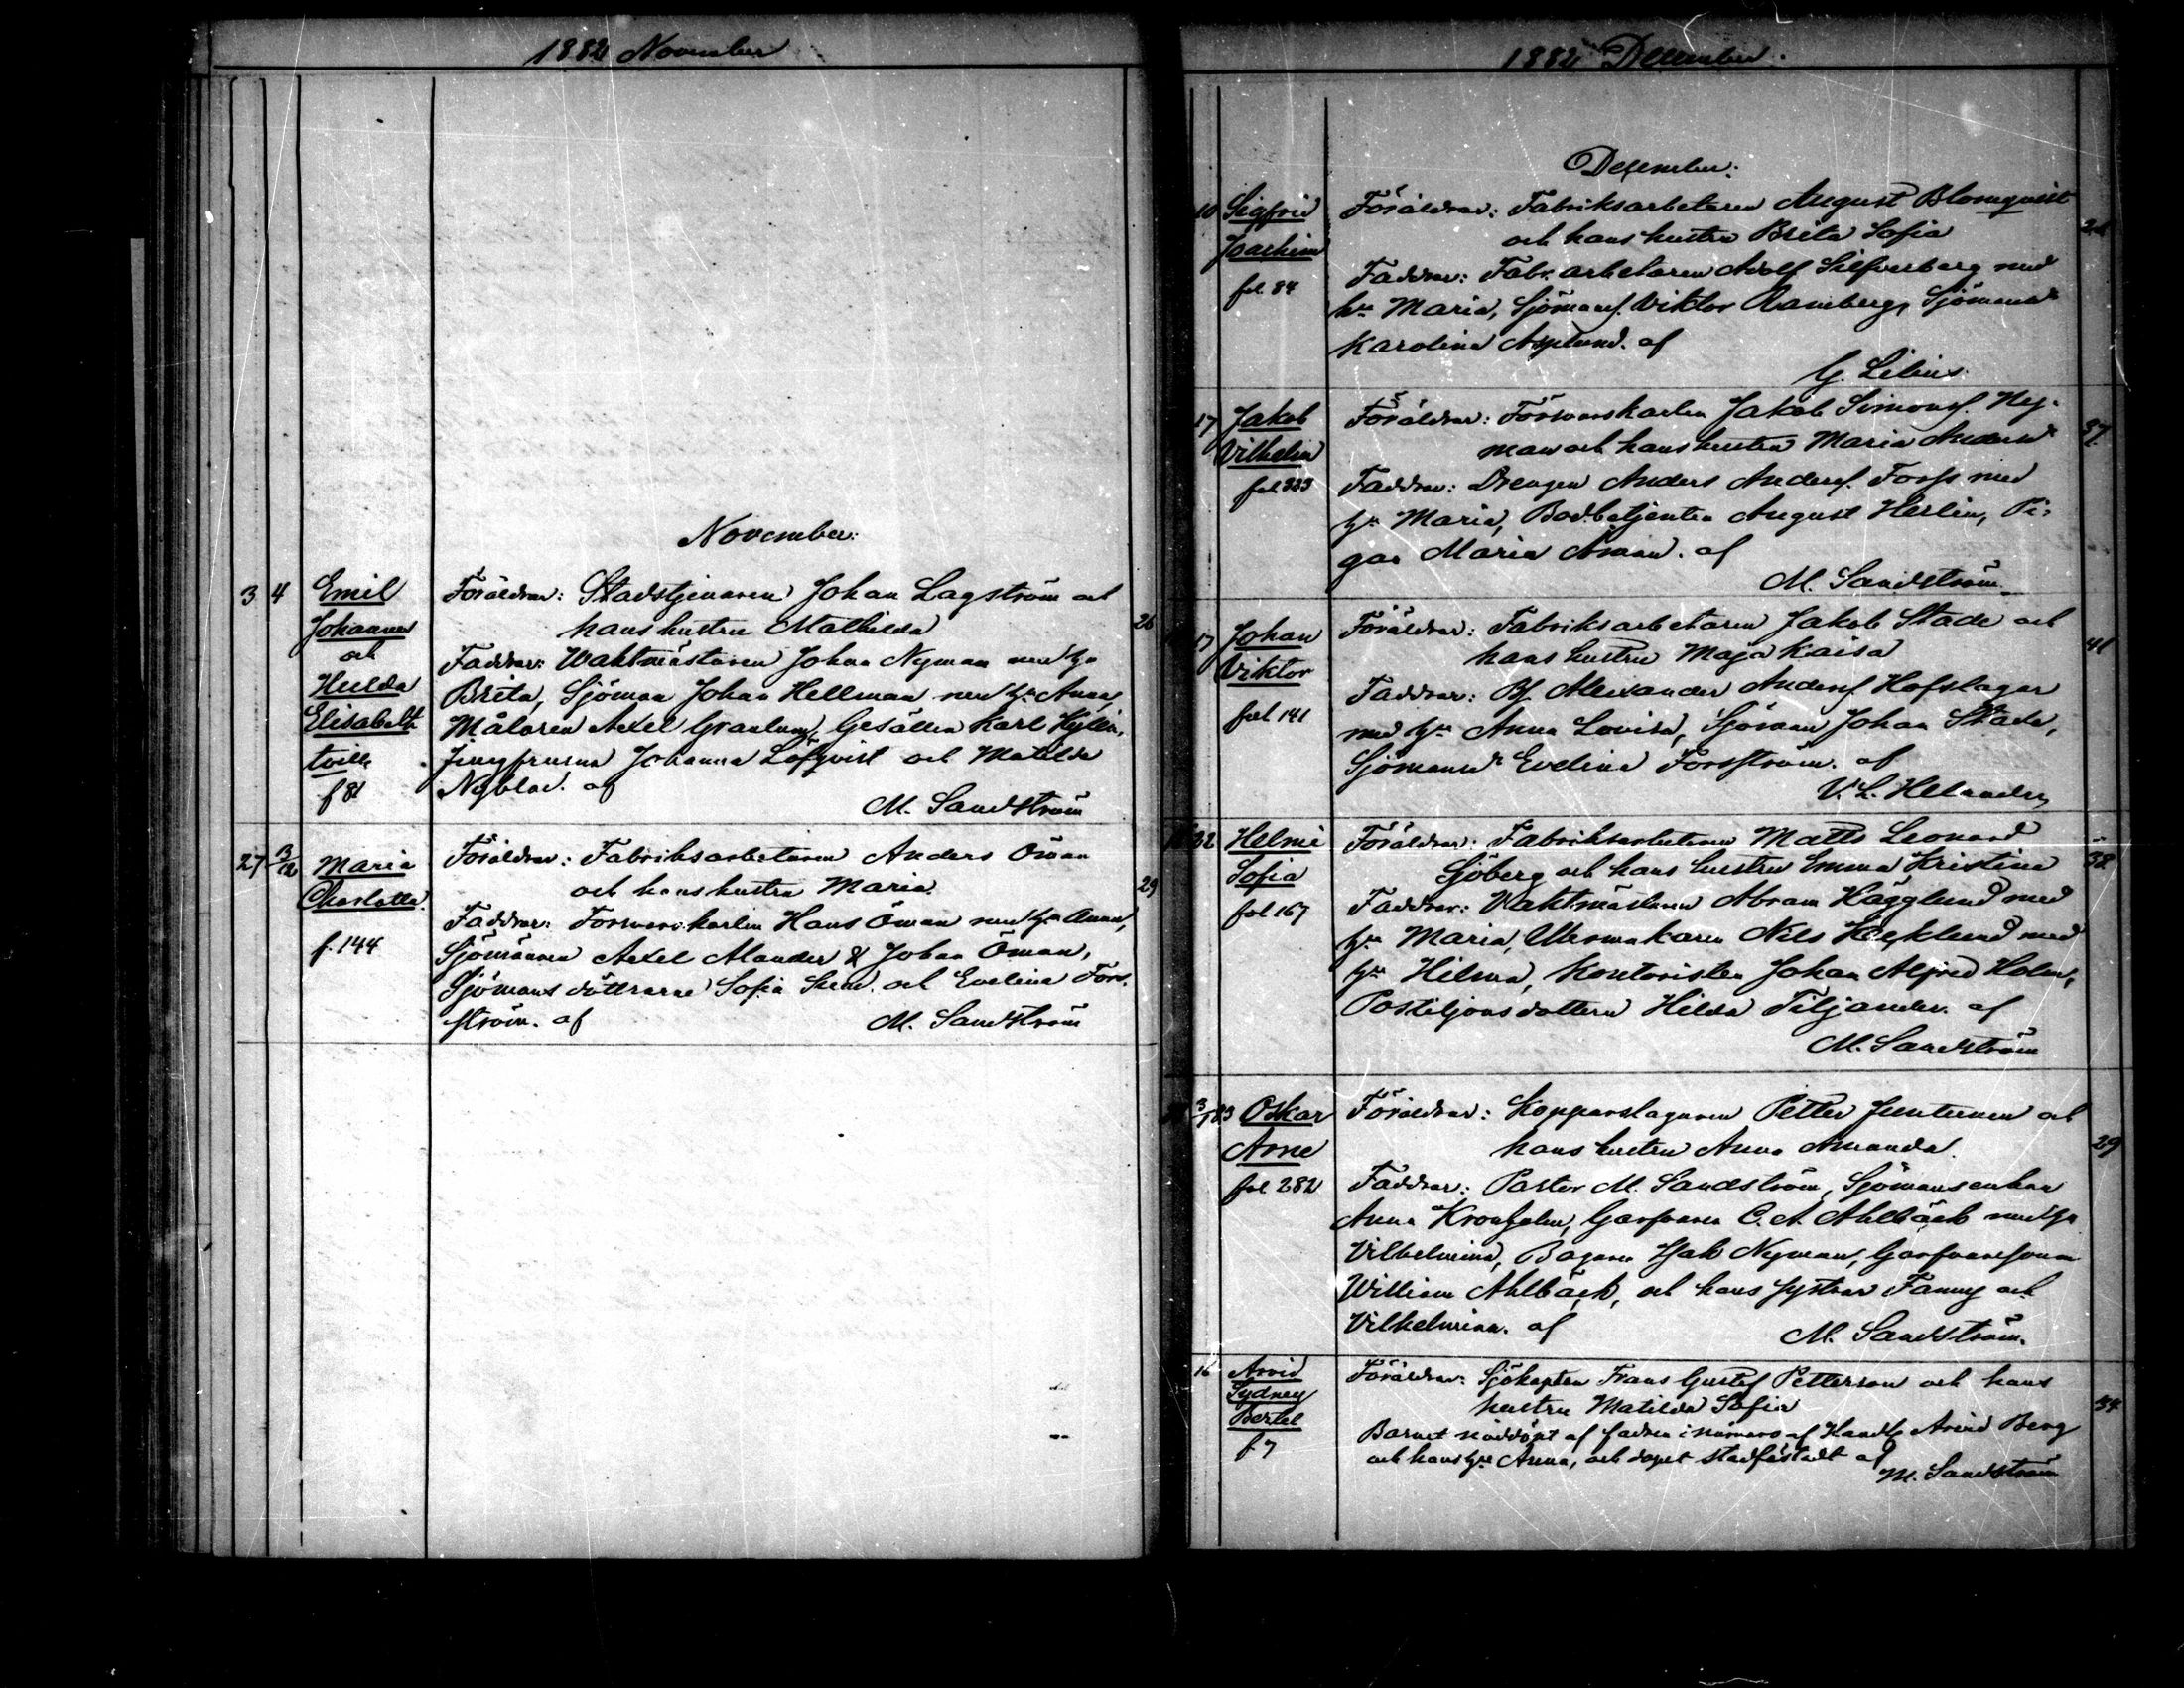 1882 November
November:
3 4 Emil Föräldrar: Stadstjenaren Johan Lagström och
Johannes hans hustru Mathilda 26
och Faddrar: Waktmästaren Johan Nyman med h:u
Hulda Brita, Sjöman Johan Hellman med h:u Anna,
Elisabeth Målaren Axel Granlund, Gesällen Karl
tvill. Jungfrurna Johanna Löfqvist och Matilda
f 81 Nyblad. af
M. Sandström
27 3/12 Maria Föräldrar: Fabriksarbetaren Anders Öman
Charlotta. och hans hustru Maria. 29
Faddrar: Forsvarskarlen Hans Öman med h:u Anna,
f. 144 Sjömännen Axel Alander & Johan Öman,
Sjömans döttrarne Sofia och Evelina Fors-
ström. af M. Sandström
1882 December.
December:
10 Sigfrid Föräldrar: Fabriksarbetaren August Blomqvist
Joachim och hans hustru Brita Sofia
fol. 84 Faddrar: Fabr. arbetaren Adolf Silfverberg med
h:u Maria, Sjömans. Viktor Ramberg, Sjömansd:r
Karolina Asplund. af
G. Lilius.
17 Jakob Föräldrar: Försvarskarlen Jakob Simons. Ny-
Vilhelm man och hans hustru Maria Andersd:r 37.
fol 323 Faddrar: Drengen Anders Anders. Forss med
h:u Maria, Bodbetjenten August Herlin, Pi-
gan Maria Åman. af
M. Sandström.
17 Johan Föräldrar: Fabriksarbetaren Jakob Stade och
Viktor hans hustru Maja Kaisa 41
fol 141 Faddrar: Bs. Alexander Anders. Hofslagar
med h:u Anna Lovisa, Sjöman Johan Stade,
Sjömansd:r Evelina Forsström. af
V. L. Helander
Helmi Föräldrar: Fabriksarbetaren Matts Leonard
Sofia Sjöberg och hans hustru Emma Kristina 32
fol 167 Faddrar: Vaktmästaren Abram Hägglund med
h:u Maria, Urmakaren Nils med
h:u Hilma, Kontoristen Johan Alfred Holm,
Postiljonsdottern Hilda Tiljander. af
M. Sandström
3/1 83 Oskar Föräldrar: Kopparslagaren Petter Juntunen och
Arne hans hustru Anna Amanda. 29
fol 282 Faddrar: Pastor M. Sandström, Sjömansenkan
Anna Kronholm, Garfvaren C. A. Ahlbäck med h:u
Vilhelmina, Bagaren Isak Nyman, Garfvaresonen
William Ahlbäck, och hans systrar Fanny och
Vilhelmina. af M. Sandström.
16 Arvid Föräldrar: Sjökapten Frans Gustaf Petterson och hans
Sydney hustru Matilda Sofia 34
Bertel Barnet nöddöpt af fadren i närvaro af Handl. Arvid Berg
f. 7 och hans h:u Anna, och dopet stadfästadt af
M. Sandström